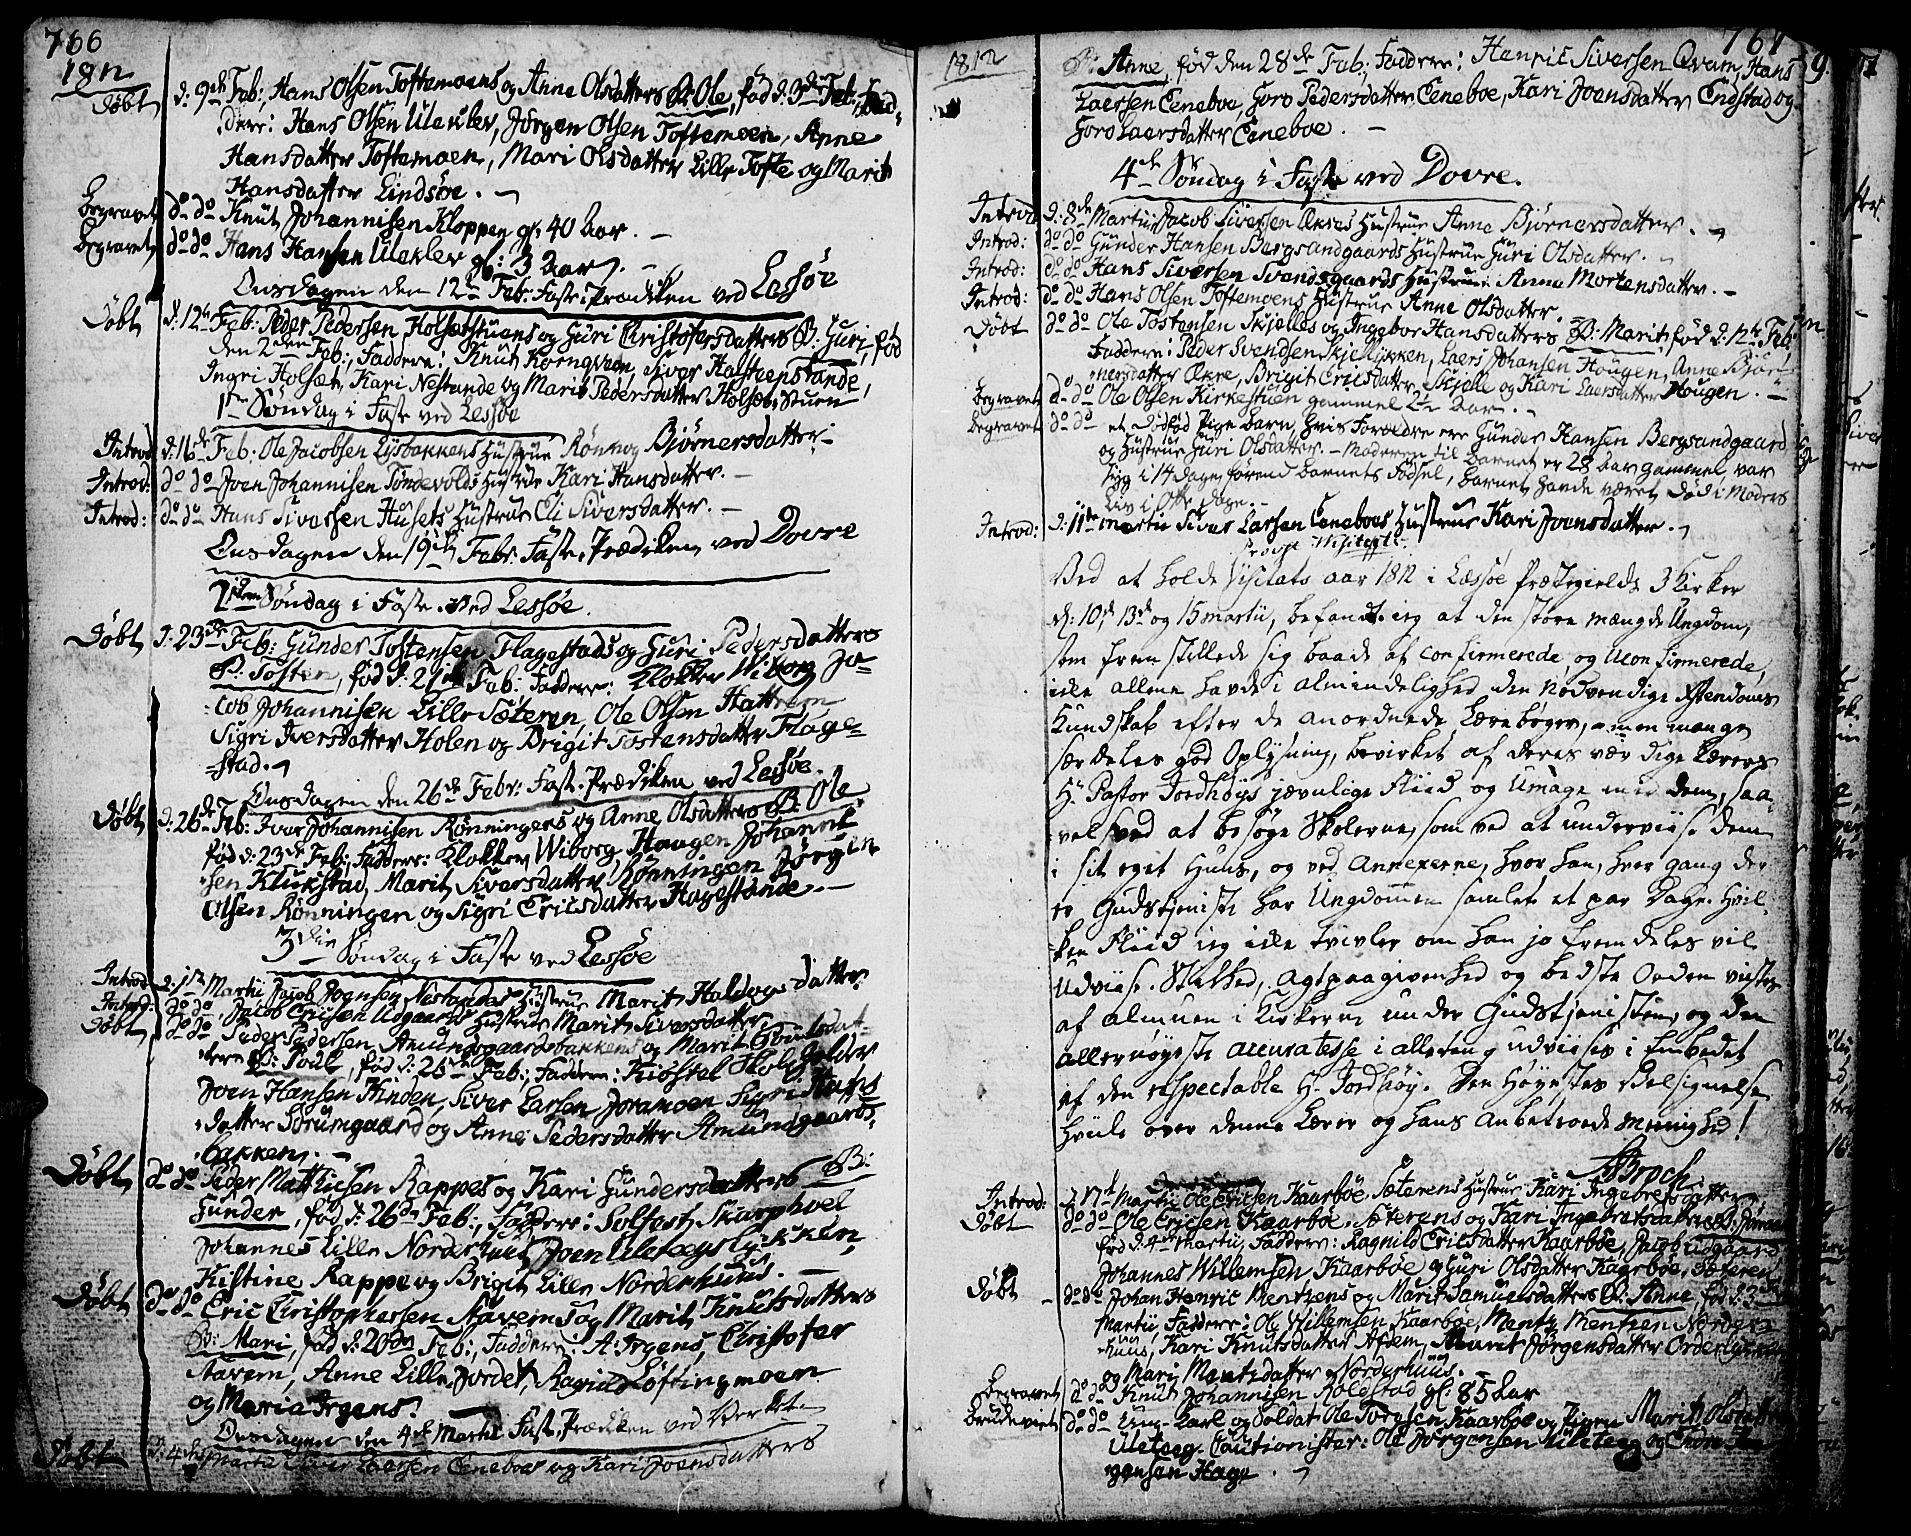 766
1812
Døbt d. 9de Feb:, Hans Olsen Toftemoens og Anne Olsdatters B: Ole, fød d. 3de Feb:, Fad-
dere: Hans Olsen Uleklev, Jørgen Olsen Toftemoen, Anne
Hansdatter Toftemoen, Mari Olsdatter Lille Tofte og Marit
Hansdatter Lindsøe.
Begravet do do Knut Johannisen Kloppen gl: 40 Aar.
Begravet do do Hans Hansen Uleklev gl: 3 Aar.
Onsdagen den 12te Feb: Faste Prædiken ved Lessøe
Døbt d. 12te Feb: Peder Pedersen Holsetstuens og Guri Christofersdatters B: Guri, fød
den 2den Feb:, Faddere: Knut Korngveen, Siver Hatrenstande,
Ingri Holsæt, Kari Nestande og Marit Pedersdatter Holsæt Stuen
1ste Søndag i Faste ved Lessøe
Introd: d. 16de Feb: Ole Jacobsen Lysbakkens Hustrue Rønnog Bjørnersdatter.
Introd: do do Joen Johannisen Tøndevolds Hustrue Kari Hansdatter.
Introd: do do Hans Siversen Husets Hustrue Eli Siversdatter.
Onsdagen den 19de Febr: Faste Prædiken ved Dovre
2den Søndag i Faste ved Lessøe.
Døbt d. 23de Feb: Gunder Tostensen Flagestads og Guri Pedersdatters
B: Tosten, fød d: 21de Feb: Faddere: Klokker Wiborg Ja-
cob Johannisen Lille Sæteren, Ole Olsen Hattrem
Sigri Iversdatter Holen og Brigit Tostensdatter Flage-
stad.
Onsdagen den 26de Febr: Faste Prædiken ved Lessøe.
Døbt d. 26de Feb: Ivar Johannisen Rønningens og Anne Olsdatters B: Ole
fød d: 23de Feb:, Faddere: Klokker Wiborg, Haagen Johanni
sen Klukstad, Marit Siversdatter Rønningen Jørgen
Olsen Rønningen og Sigri Ericsdatter Hagestande.
3die Søndag i Faste ved Lessøe
Introd: d. 1ste Martii Jacob Joensen Nestandes Hustrue Marit Haldogsdatter
Introd: do do Jacob Ericsen Udgaards Hustrue Marit Siversdatter
Døbt do do Peder Pedersen Amundsgaardsbakkens og Marit
B: Poul, fød d: 25de Feb:, Faddere: Skoleholder
Joen Hansen Hinden, Siver Larsen Joramoen Sigri Hans
datter Sørumgaard og Anne Pedersdatter Amundgaards
bakken.
Døbt do do Peder Mathiesen Rappes og Kari Gundersdatters B:
Gunder, fød d: 26de Feb:, Faddere: Solfest Skarphoel
Johannes Lille Norderhuus, Joen Uletegslykken,
Kistine Rappe og Brigit Lille Norderhuus.
Døbt do do Eric Christophersen Aavems og Marit Knutsdatters
B: Mari, fød d: 20de Feb:, Faddere: A: Irgens, Christofer
Aavem, Anne Lille Jordet, Ragnild Løftingmoen
og Maria Irgens.
Onsdagen den 4de Martii Faste Prædiken ved Verket
Døbt d: 4de Martii Siver Laersen Eneboes og Kari Joensdatters
1812
767
B: Anne, fød den 28de Feb: Faddere: Henric Siversen Qvam, Hans
Laersen Eneboe, Goro Pedersdatter Eneboe, Kari Joensdatter Endstad og
Goro Laersdatter Eneboe.
4de Søndag i Faste ved Dovre.
Introd: d. 8de Martii Jacob Siversen Økres Hustrue Anne Bjørnersdatter.
Introd: do do Gunder Hansen Bergsandgaards Hustrue Guri Olsdatter.
Introd: do do Hans Siversen Svandsgaards Hustrue Anne Mortensdatter.
Introd: do do Hans Olsen Toftemoens Hustrue Anne Olsdatter.
Døbt do do Ole Tostensen Skjelles og Ingebor Hansdatters B: Marit, fød d. 12te Feb:
Faddere: Peder Svendsen Skjellikken, Laers Johansen Hougen, Anne Bjør-
nersdatter Økre, Brigit Ericsdatter Skjelle og Kari Laersdatter Hougen.
Begravet do do Ole Olsen Kirkestuen gammel 2½ Aar.
Begravet do do et dødfød Pige Barn, hvis Foreldre ere Gunder Hansen Bergsandgaard
og Hustrue Guri Olsdatter. Moderen til Barnet er 28 Aar gammel var
syg i 14 dage førend Barnets Fødsel, Barnet havde været død i Moders
Liv i Otte dage.
Introd: d. 11te Martii Siver Larsen Eneboes Hustrue Kari Joensdatter.
Provst Visitats.
Ved at holde Visitats aar 1812 i Læssøe Præstegields 3 Kirker
d: 10de 13de og 15 martii, befandt ieg at den store mængde Ungdom,
som fremstillede sig baade af confirmerede, og Uconfirmerede,
ikke allene havde i Almindelighed den nødvendige Christendoms
Kundskab efter de anordnede Lærebøger, men mange
særdeles god Oplysning, bevirket af deres værdige Lærers
Hr Pastor Jordhøys jævnlige Fliid og Umage med dem, saa
vel ved at besøge Skolerne, som ved at underviise dem
i sit eget Huus, og ved Annexerne, hvor han, hver gang der
er Gudstjeniste har Ungdommen samlet et par Dage. Hvil-
ken Fliid ieg ikke tvivler om han jo fremdeles vil
Udviise. Stilhed, Agtpaagivenhed og bedste Orden viistes
af Almuen i Kirkerne under Gudstjenisten, og den
allernøyeste accuratesse i alleting udviises i Embedet
af den respectable Hr Jordhøy. Den Høyestes Velsignelse
Hviile over denne Lærer og hans Anbetroede Menighed!
ABroch
Introd: d. 17de Martii Ole Ericsen Kaarbøe Sæterens Hustrue Kari Ingebretsdatter
Døbt do do Ole Ericsen Kaarbøe Sæterens og Kari Ingebretsdatters B:
fød d: 4de Martii, Faddere: Ragnild Ericsdatter Kaarbøe, Jacob Udgaard
Johannes Willemsen Kaarbøe og Guri Olsdatter Kaarbøe Sæteren
Døbt do do Johan Henric Mentzens og Marit Samuelsdatters B: Anne, fød d: 3de
Martii Faddere: Ole Willemsen Kaarbøe, Mentz Mentzen Norder-
huus, Kari Knutsdatter Aftem, Marit Jørgensdatter
og Mari Mentsdatter Norderhuus.
Begravet do do Knut Johannisen Kolstad gl: 85 Aar
Brudeviet do do Ung-Karl og Soldat Ole Kaarbøe og Pigen Marit
Uleteeg. Cautionister: Ole Jørgensen Uleteeg og
gensen Hage.